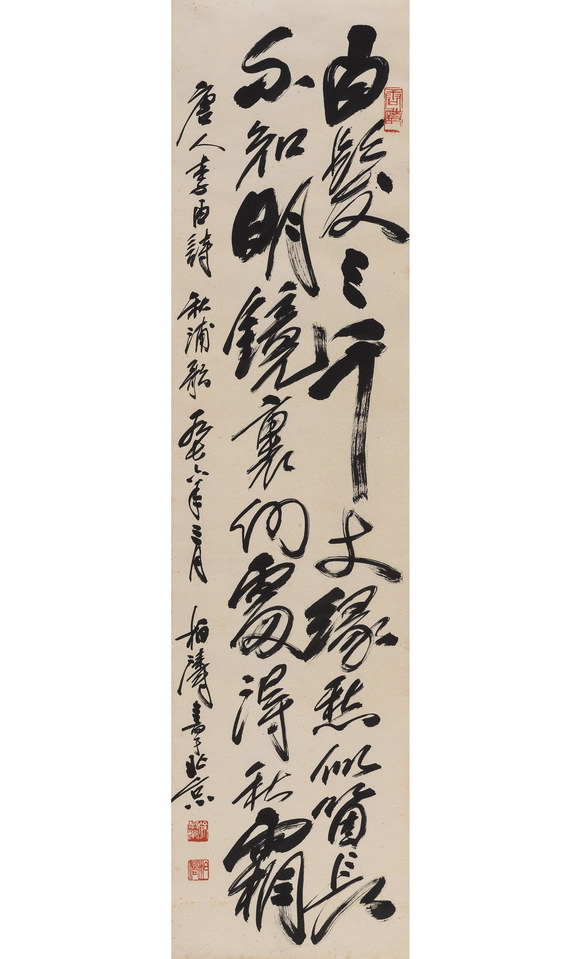 白髮三千丈緣愁似箇長
不知明鏡裏何處得秋霜
唐人李白詩 秋浦歌 一九七六年三月 柏濤書于北京